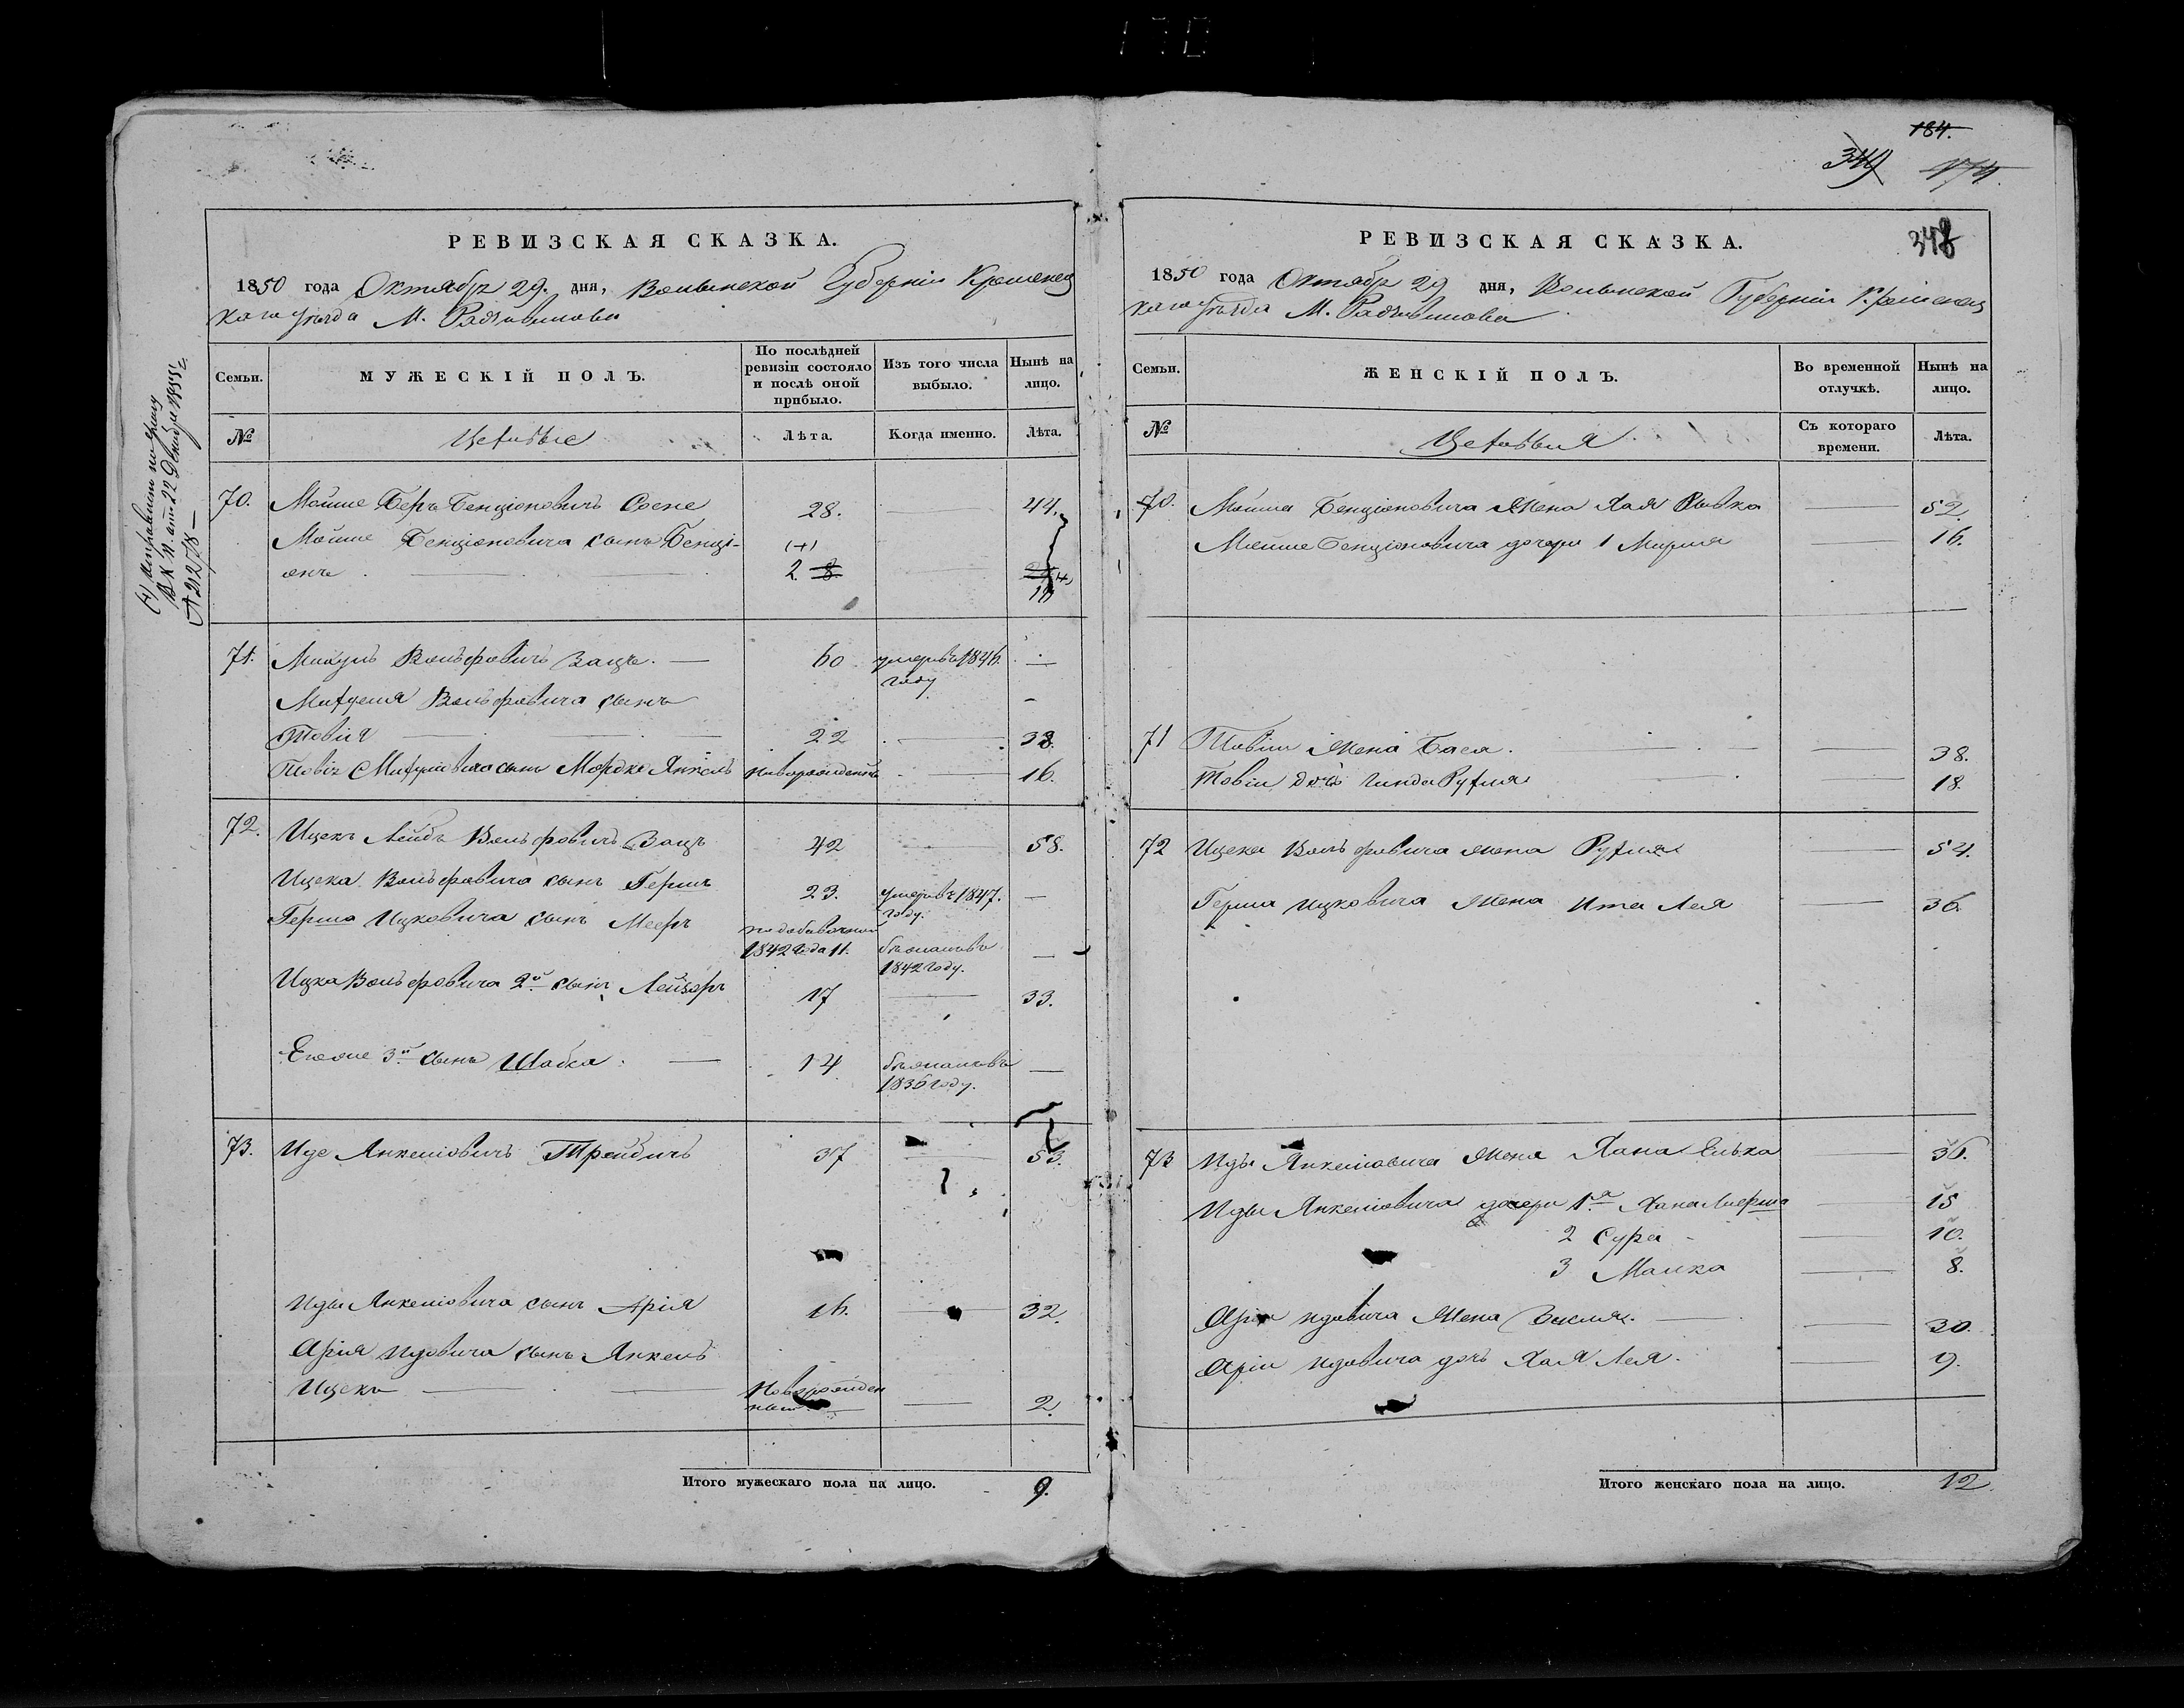 184.
349 174.
348
РЕВИЗСКАЯ СКАЗКА.
1850 года Октября 29. дня, Волынской Губерніи Кременец
каго уѣзда М. Радзивилова
Семьи.
МУЖЕСКІЙ ПОЛЪ.
По послѣдней ревизіи состояло и послѣ оной прибыло.
Изъ того числа выбыло.
Нынѣ на лицо.
№
Лѣта.
Когда именно.
Лѣта.
70. Мошке Беръ Бенціоновичъ 28. 44.
Мошке Бенціоновича сынъ Бенці- (+)
онъ 2. 8.
71. Вольфовичъ Зацъ. 60 умеръ въ 1846.
году
Вольфовича сынъ
Товія 22 38.
сынъ Мордко Янкель новорожденный 16.
72. Ицекъ Лейбъ Вольфовичъ Зацъ 42 58.
Ицека Вольфовича сынъ Гершъ 23. умеръ въ 1847.
году.
Герша Ицковича сынъ Мееръ по добавочной
1842 года 11.
1842 году.
Ицка Вольфовича 2й сынъ Лейзоръ 17 33.
Егоже 3й сынъ Шабса 14
1836 году.
73. Иде Янкелiовичъ 37 53.
Иды Янкелiовича сынъ Арія 16. 32.
Арія Идовича сынъ Янкель
Ицекъ Новорожден
ный 2.
Итого мужескаго пола на лицо. 9.
РЕВИЗСКАЯ СКАЗКА.
1850 года Октября 29 дня, Волынской Губерніи Кременец
каго уѣзда М. Радзивилова
Семьи.
ЖЕНСКІЙ ПОЛЪ.
Во временной отлучкѣ.
Нынѣ на лицо.
№
Съ котораго времени.
Лѣта.
70. Мошка Бенціоновича жена Хая Рывка 52.
Мошке Бенціоновича дочери 1 Мирля 16.
71 Товіи жена Бася. 38.
Товіи дочь Гинда Рухля 18.
72 Ицека Вольфовича жена Рухля 54.
Герша Ицковича жена Ита Лея 36.
73 Иды Янкелiовича жена Хана Елька 36.
Иды Янкелiовича дочери 1я Хана 15
2 Сура 10.
3 Малка 8.
Аріи Идовича жена 30.
Аріи Идовича дочь Хая Лея. 9.
Итого женскаго пола на лицо. 12